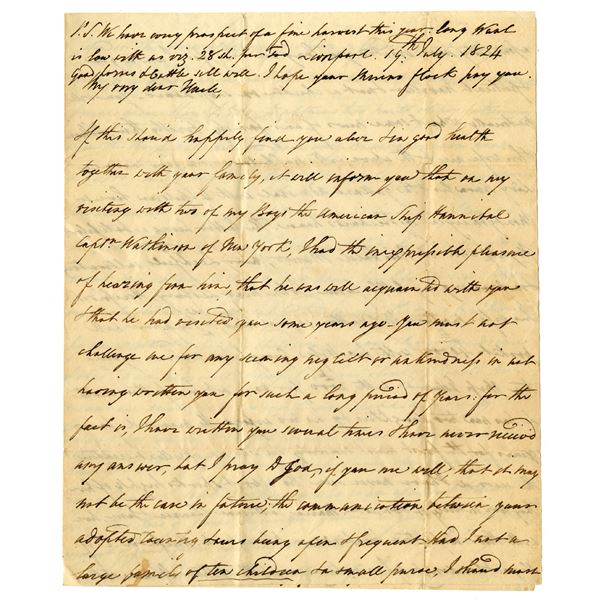 P.S. We have every prospect of a fine harvest this year. long Wool
is low with us viz. 28sh. per Tod Liverpool. 19th July. 1824
Good horses & Cattle sell well. I hope your Merino flock pay you.
My very dear Uncle,
If this should happily find you alive & in good health
together with your family, it will inform you that on my
visiting with two of my Boys the American Ship Hannibal
Captn Watkinson of New York, I had the inexpressible pleasure
of hearing from him, that he was well acquainted with you
& that he had visited you some years ago. You must not
challenge me for any seeming neglect or unkindness in not
having written you for such a long period of years. for the
fact is, I have written you several times & have never received
any answer, but I pray to God, if you are well, that it may
not be the case in future, the communication between your
adopted country & ours being open & frequent. Had I not a
large family of ten children & a small purse, I should most